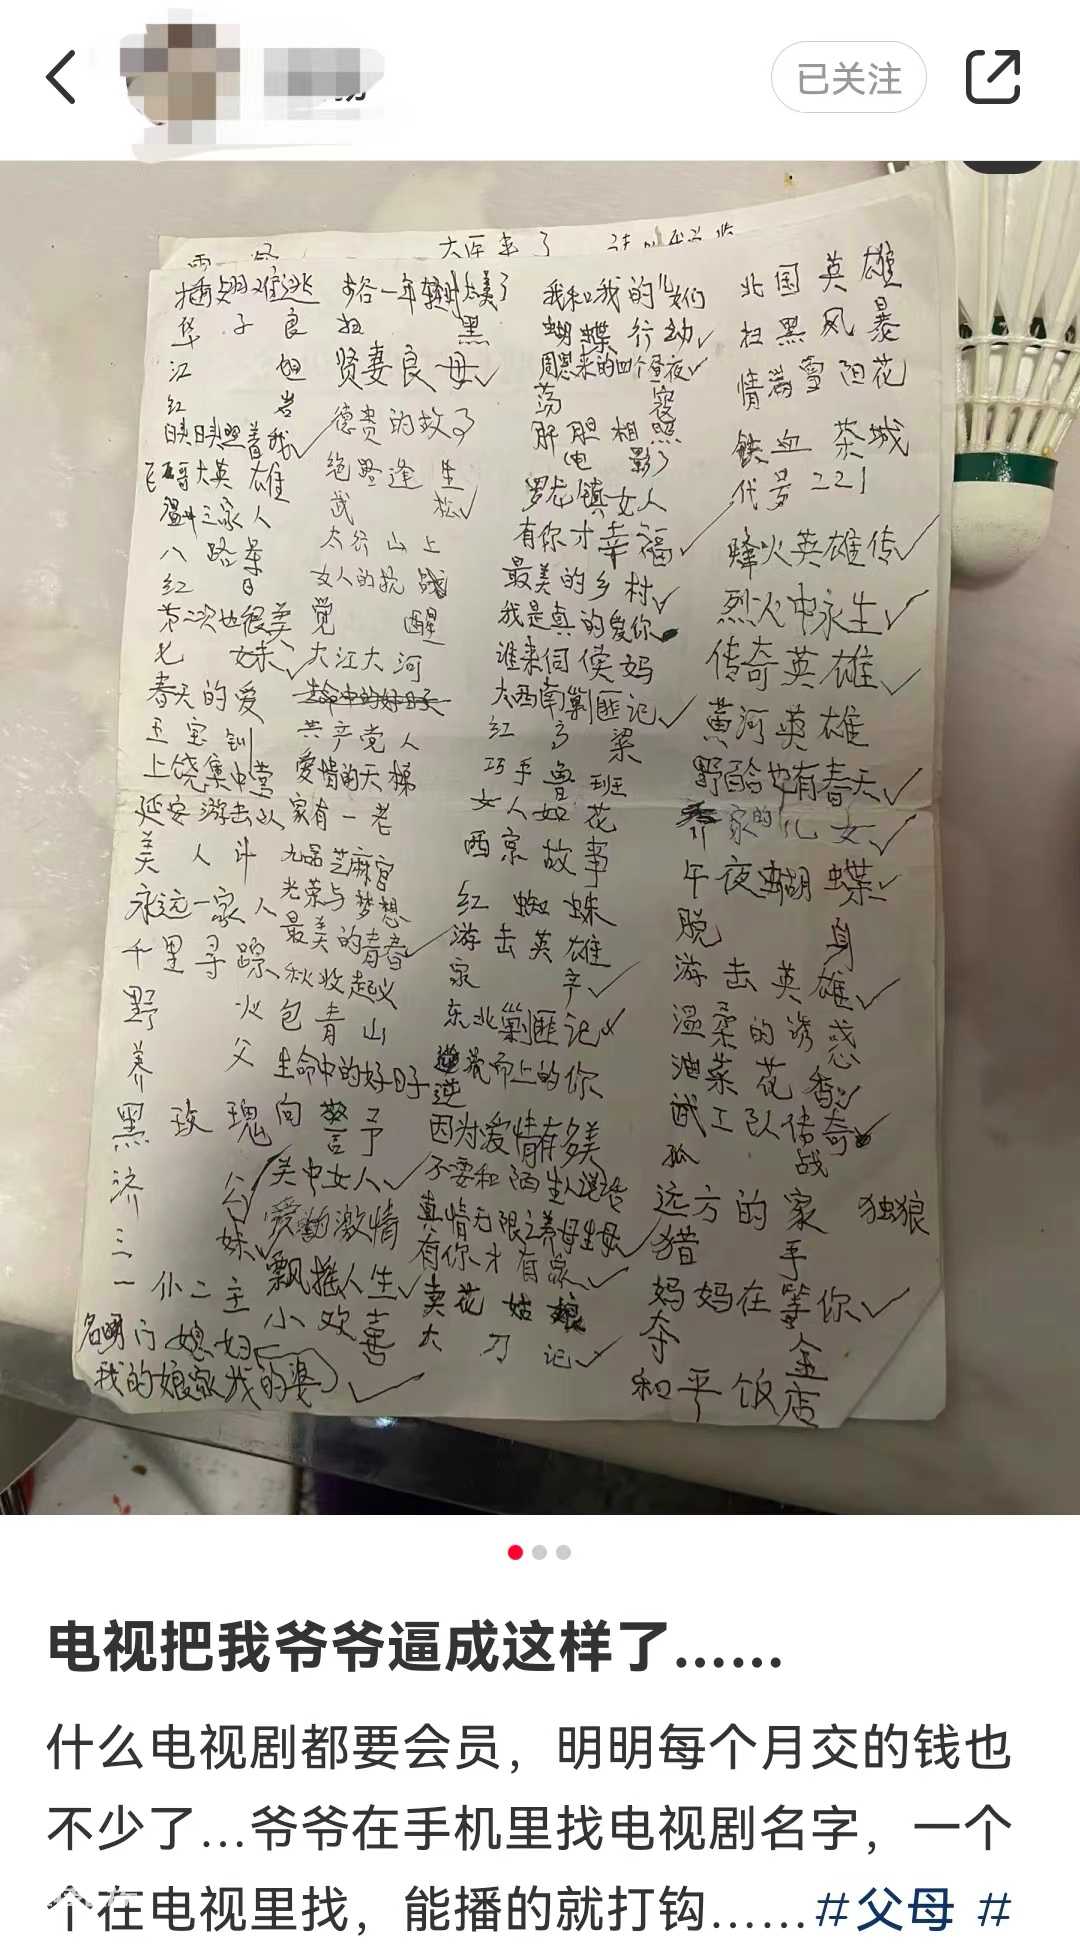 已关注
大医来了
插翅难逃
华子良
江姐
红岩
映映照着我
哥大英雄
温州三家人
八路军
红日
第二次也很美
七妹
春天的爱
王宝钏
上饶集中营
延安游击队
美人斗
永远一家人
千里寻踪
野火
养父
黑玫瑰
济公
三妹
一仆二主
名门媳妇
我的娘家我的婆
步谷一年轻时太美了
扫黑
贤妻良母
德贵的故了
绝路逢生
武松
太行山上
女人的抗战
觉醒
大江大河
共产党人
爱情的天梯
家有一老
九品芝麻官
光荣与梦想
最美的青春
秋收起义
包青山
生命中的好日子
向警予
关中女人
爱的激情
飘摇人生
小欢喜
我和我的儿女们
蝴蝶行动
周恩来的四个昼夜
荡寇
肝胆相照
电影了
罗龙镇女人
有你才幸福
最美的乡村
我是真的爱你
谁来伺候妈
大西南剿匪记
红高粱
巧手鲁班
女人如花
西京故事
红蜘蛛
游击英雄
家辛
东北剿匪记
逆流而上的你
逆
因为爱情有多美
不要和陌生人说话
真情无限之养母生母
有你才有家
卖花姑娘
大刀记
北国英雄
扫黑风暴
情满雪阳花
铁血茶城
代号221
烽火英雄传
烈火中永生
传奇英雄
黄河英雄
野百合也有春天
乔家的儿女
午夜蝴蝶
脱身
游击英雄
温柔的诱惑
油菜花香
武工队传奇
孤战
远方的家 独狼
猎手
妈妈在等你
夺金
和平饭店
电视把我爷爷逼成这样了......
什么电视剧都要会员，明明每个月交的钱也
不少了...爷爷在手机里找电视剧名字，一个
个在电视里找，能播的就打钩......#父母 #